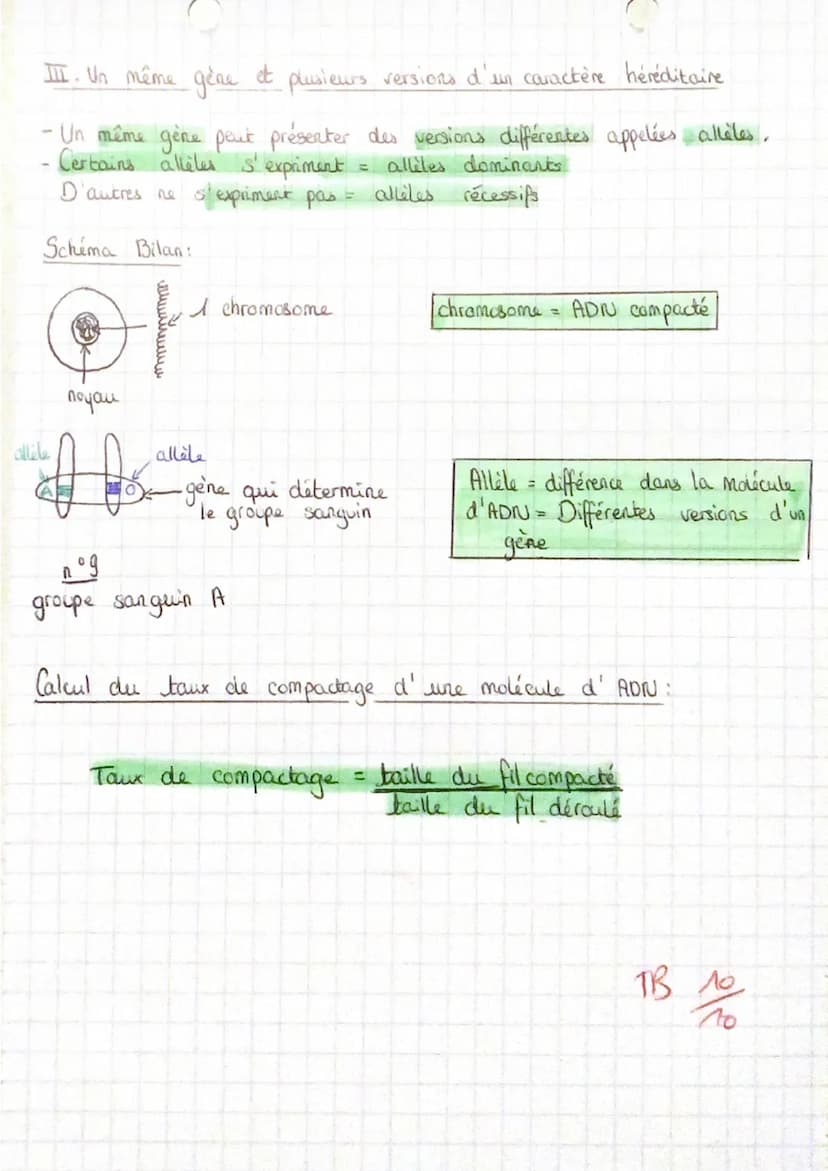 III. Un même gène et plusieurs versions d'un caractère héréditaire
- Un même gène peut présenter des versions différentes appelées allèles.
- Certains allèles s'expriment = allèles dominants
D'autres ne s'expriment pas = allèles récessifs
Schéma Bilan:
1 chromosome
chromosome = ADN compacté
noyau
allèle
allèle
A
O
gène qui détermine
le groupe sanguin
Allèle = différence dans la molécule
d'ADN = Différentes versions d'un
gène
n°9
groupe sanguin A
Calcul du taux de compactage d'une molécule d'ADN :
Taux de compactage = taille du fil compacté
taille du fil déroulé
TB 10
10